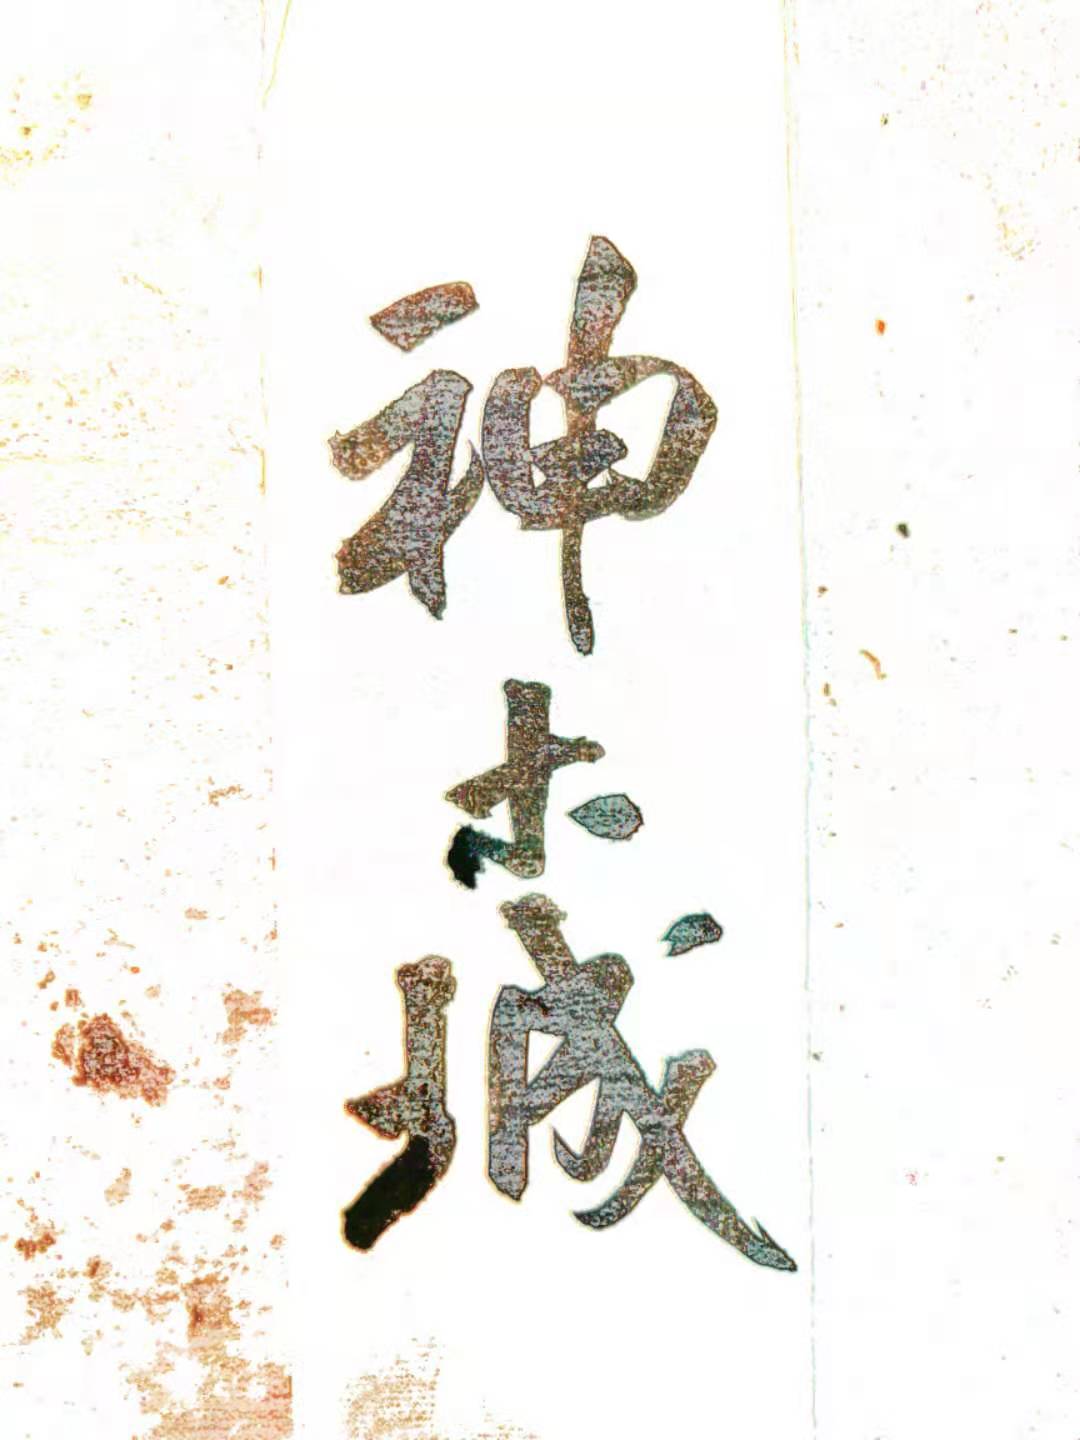 神木城